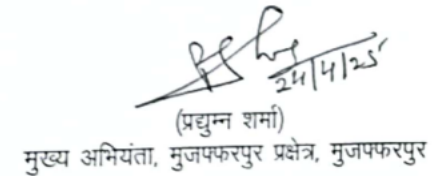 24/4/25
(प्रद्युम्न शर्मा)
मुख्य अभियंता, मुजफ्फरपुर प्रक्षेत्र, मुजफ्फरपुर